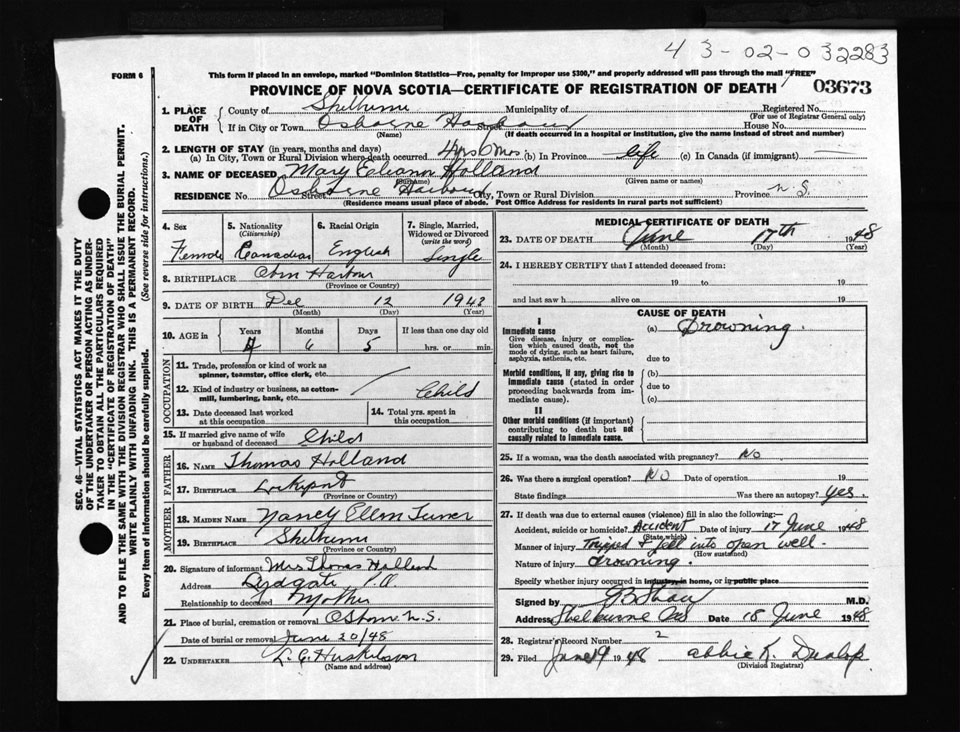 43-02-032283
FORM 6
This form if placed in an envelope, marked "Dominion Statistics—Free, penalty for improper use $300," and properly addressed will pass through the mail "FREE"
PROVINCE OF NOVA SCOTIA—CERTIFICATE OF REGISTRATION OF DEATH 03673
1. PLACE OF DEATH County of Shelburne Municipality of Registered No.
(For use of Registrar General only)
If in City or Town Osborne Harbour Street House No.
(Name) (If death occurred in a hospital or institution, give the name instead of street and number)
2. LENGTH OF STAY (in years, months and days)
(a) In City, Town or Rural Division where death occurred 4 yrs 6 Mos. (b) In Province life (c) In Canada (if immigrant) —
3. NAME OF DECEASED Mary Holland
(Surname) (Given name or names)
RESIDENCE No. Street Osborne Harbour City, Town or Rural Division Province N. S.
(Residence means usual place of abode. Post Office Address for residents in rural parts not sufficient)
4. Sex 5. Nationality (Citizenship) 6. Racial Origin 7. Single, Married, Widowed or Divorced (write the word)
Female Canadian English Single
8. BIRTHPLACE Harbour
(Province or Country)
9. DATE OF BIRTH Dec 12 1943
(Month) (Day) (Year)
10. AGE in Years Months Days If less than one day old
4 6 5 hrs. or min.
OCCUPATION
11. Trade, profession or kind of work as spinner, teamster, office clerk, etc.
12. Kind of industry or business, as cotton-mill, lumbering, bank, etc. Child
13. Date deceased last worked at this occupation
14. Total yrs. spent in this occupation
15. If married give name of wife or husband of deceased Child
FATHER
16. NAME Thomas Holland
17. BIRTHPLACE Lockeport
(Province or Country)
MOTHER
18. MAIDEN NAME Nancy Ellen
19. BIRTHPLACE Shelburne
(Province or Country)
20. Signature of informant Mrs Thomas Holland
Address Lydgate P.O.
Relationship to deceased Mother
21. Place of burial, cremation or removal Osborne N.S.
Date of burial or removal June 20/48
22. UNDERTAKER L. C. Huskilson
(Name and address)
MEDICAL CERTIFICATE OF DEATH
23. DATE OF DEATH June 17th 1948
(Month) (Day) (Year)
24. I HEREBY CERTIFY that I attended deceased from:
19 to 19
and last saw h alive on 19
CAUSE OF DEATH
I
Immediate cause (a) Drowning.
Give disease, injury or complication which caused death, not the mode of dying, such as heart failure, asphyxia, asthenia, etc.
due to
Morbid conditions, if any, giving rise to immediate cause (stated in order proceeding backwards from immediate cause).
(b)
due to
(c)
II
Other morbid conditions (if important) contributing to death but not causally related to immediate cause.
25. If a woman, was the death associated with pregnancy? No
26. Was there a surgical operation? No Date of operation 19
State findings Was there an autopsy? Yes.
27. If death was due to external causes (violence) fill in also the following:—
Accident, suicide or homicide? Accident Date of injury 17 June 1948
(State which)
Manner of injury Tripped & fell into open well.
(How sustained)
Nature of injury drowning.
Specify whether injury occurred in industry, in home, or in public place
Signed by M.D.
Address Shelburne NS Date 18 June 1948
28. Registrar's Record Number 2
29. Filed June 19 1948 Abbie K. Dunlop
(Division Registrar)
SEC. 46—VITAL STATISTICS ACT MAKES IT THE DUTY
OF THE UNDERTAKER OR PERSON ACTING AS UNDER-
TAKER TO OBTAIN ALL THE PARTICULARS REQUIRED
IN THE "CERTIFICATE OF REGISTRATION OF DEATH"
AND TO FILE THE SAME WITH THE DIVISION REGISTRAR WHO SHALL ISSUE THE BURIAL PERMIT.
WRITE PLAINLY WITH UNFADING INK. THIS IS A PERMANENT RECORD.
Every item of information should be carefully supplied. (See reverse side for instructions.)